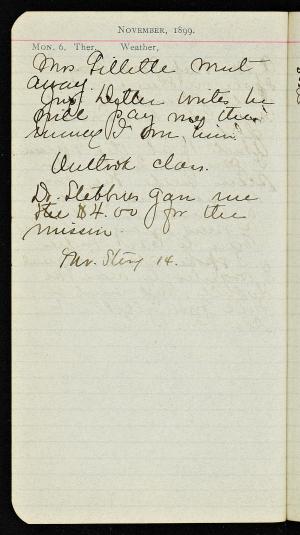 NOVEMBER, 1899.
MON. 6. Ther. Weather,
Mrs. Gillette went
away.
writes he
will pay me the
money I
Outlook class.
Dr. Stebbins gave me
the $4.00 for the
mission.
Mr. 14.